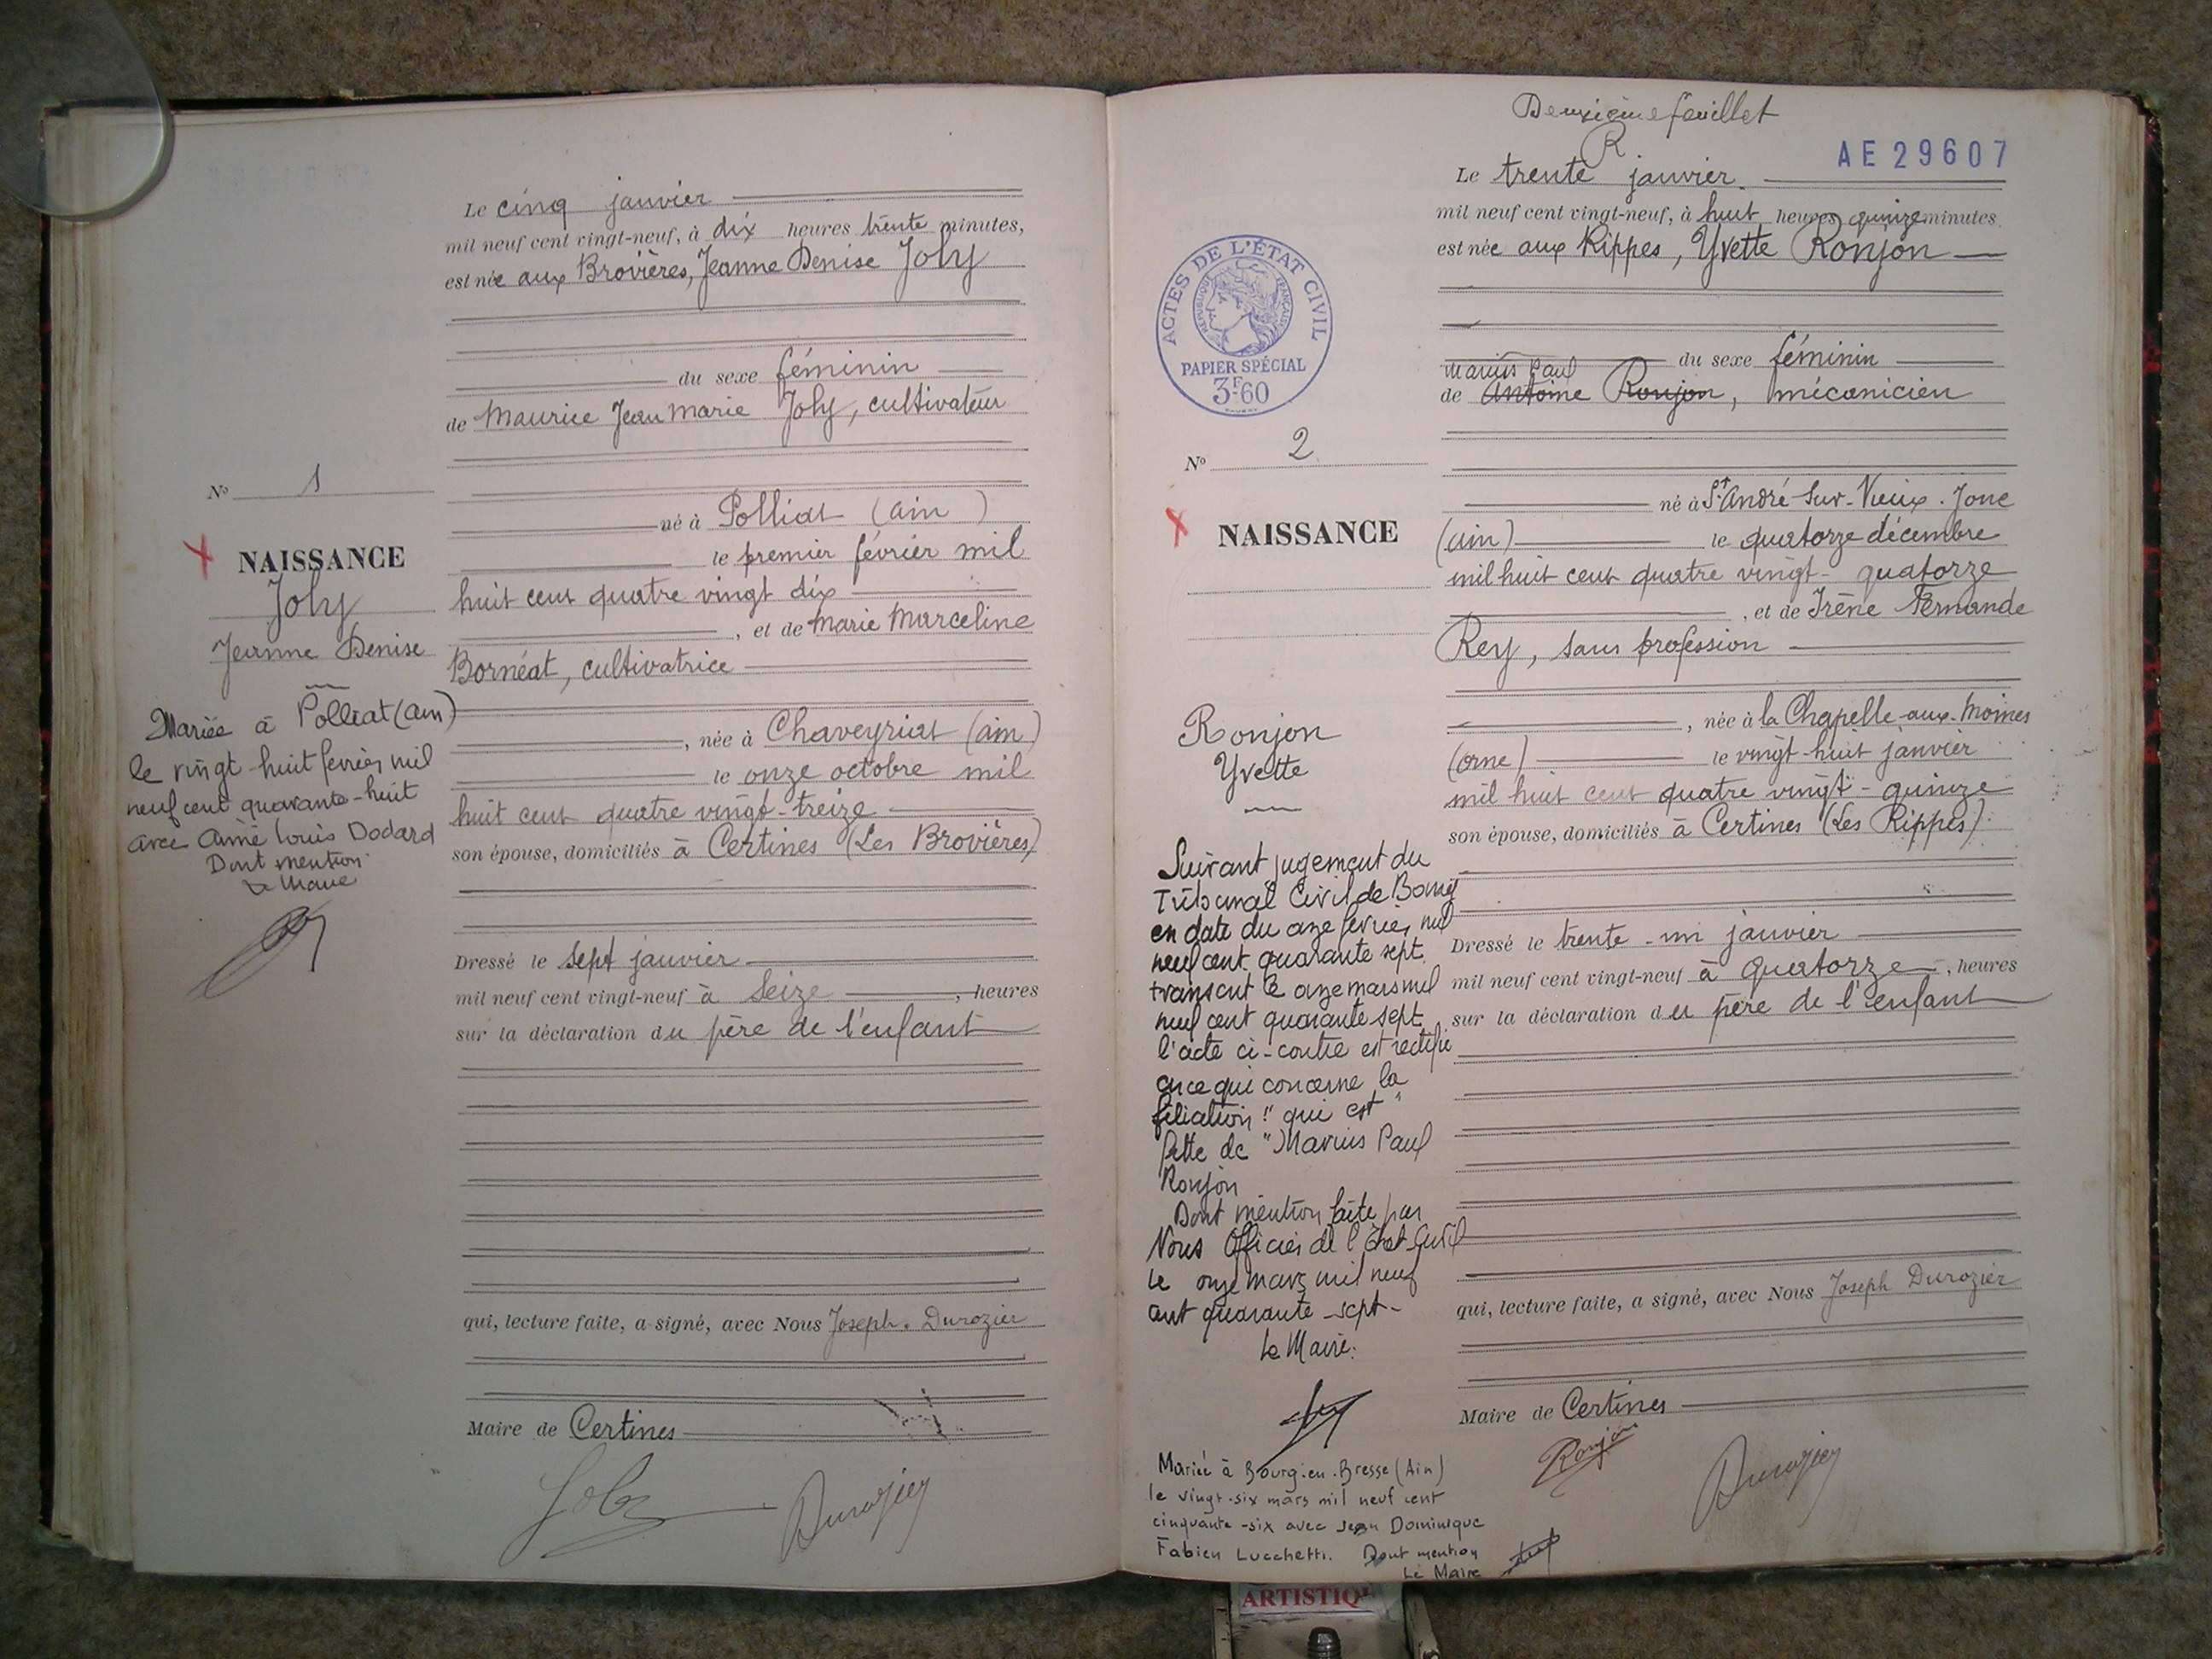 Le cinq janvier
mil neuf cent vingt-neuf, à dix heures trente minutes,
est née aux Brovières, Jeanne Denise Joly
du sexe féminin
de Maurice Jean Marie Joly, cultivateur
né à Polliat (ain)
le premier février mil
huit cent quatre vingt dix
, et de Marie Marceline
Bornéat, cultivatrice
, née à Chaveyriat (ain)
le onze octobre mil
huit cent quatre vingt-treize
son épouse, domiciliés à Certines (Les Brovières)
Dressé le sept janvier
mil neuf cent vingt-neuf à seize, heures
sur la déclaration du père de l'enfant
qui, lecture faite, a signé, avec Nous Joseph. Durozier
Maire de Certines
Joly Durozier
No 1
NAISSANCE
Joly
Jeanne Denise
Mariée à Polliat (ain)
le vingt-huit février mil
neuf cent quarante-huit
avec Aimé Louis Dodard
Dont mention
Le Maire
Deuxième feuillet
R
AE29607
ACTES DE L'ÉTAT CIVIL
RÉPUBLIQUE FRANÇAISE
PAPIER SPÉCIAL
3F60
Le trente janvier.
mil neuf cent vingt-neuf, à huit heures quinze minutes
est née aux Rippes, Yvette Ronjon
du sexe féminin
Marius Paul
de Antoine Ronjon, mécanicien
né à St André-sur-Vieux-Jonc
(ain) le quatorze décembre
mil huit cent quatre vingt-quatorze
, et de Irène Fernande
Rey, sans profession
, née à la Chapelle-aux-Moines
(orne) le vingt-huit janvier
mil huit cent quatre vingt-quinze
son épouse, domiciliés à Certines (Les Rippes).
Dressé le trente-un janvier
mil neuf cent vingt-neuf à quatorze, heures
sur la déclaration du père de l'enfant
qui, lecture faite, a signé, avec Nous Joseph Durozier
Maire de Certines
Ronjon Durozier
No 2
NAISSANCE
Ronjon
Yvette
Suivant jugement du
Tribunal Civil de Bourg
en date du onze février mil
neuf cent quarante sept
transcrit le onze mars mil
neuf cent quarante sept
l'acte ci-contre est rectifié
en ce qui concerne la
filiation "qui est"
fille de "Marius Paul
Ronjon
Dont mention faite par
Nous Officier de l'Etat-Civil
le onze mars mil neuf
cent quarante-sept-
Le Maire:
Mariée à Bourg-en-Bresse (Ain)
le vingt-six mars mil neuf cent
cinquante-six avec Jean Dominique
Fabien Lucchetti. Dont mention
Le Maire
ARTISTIQU